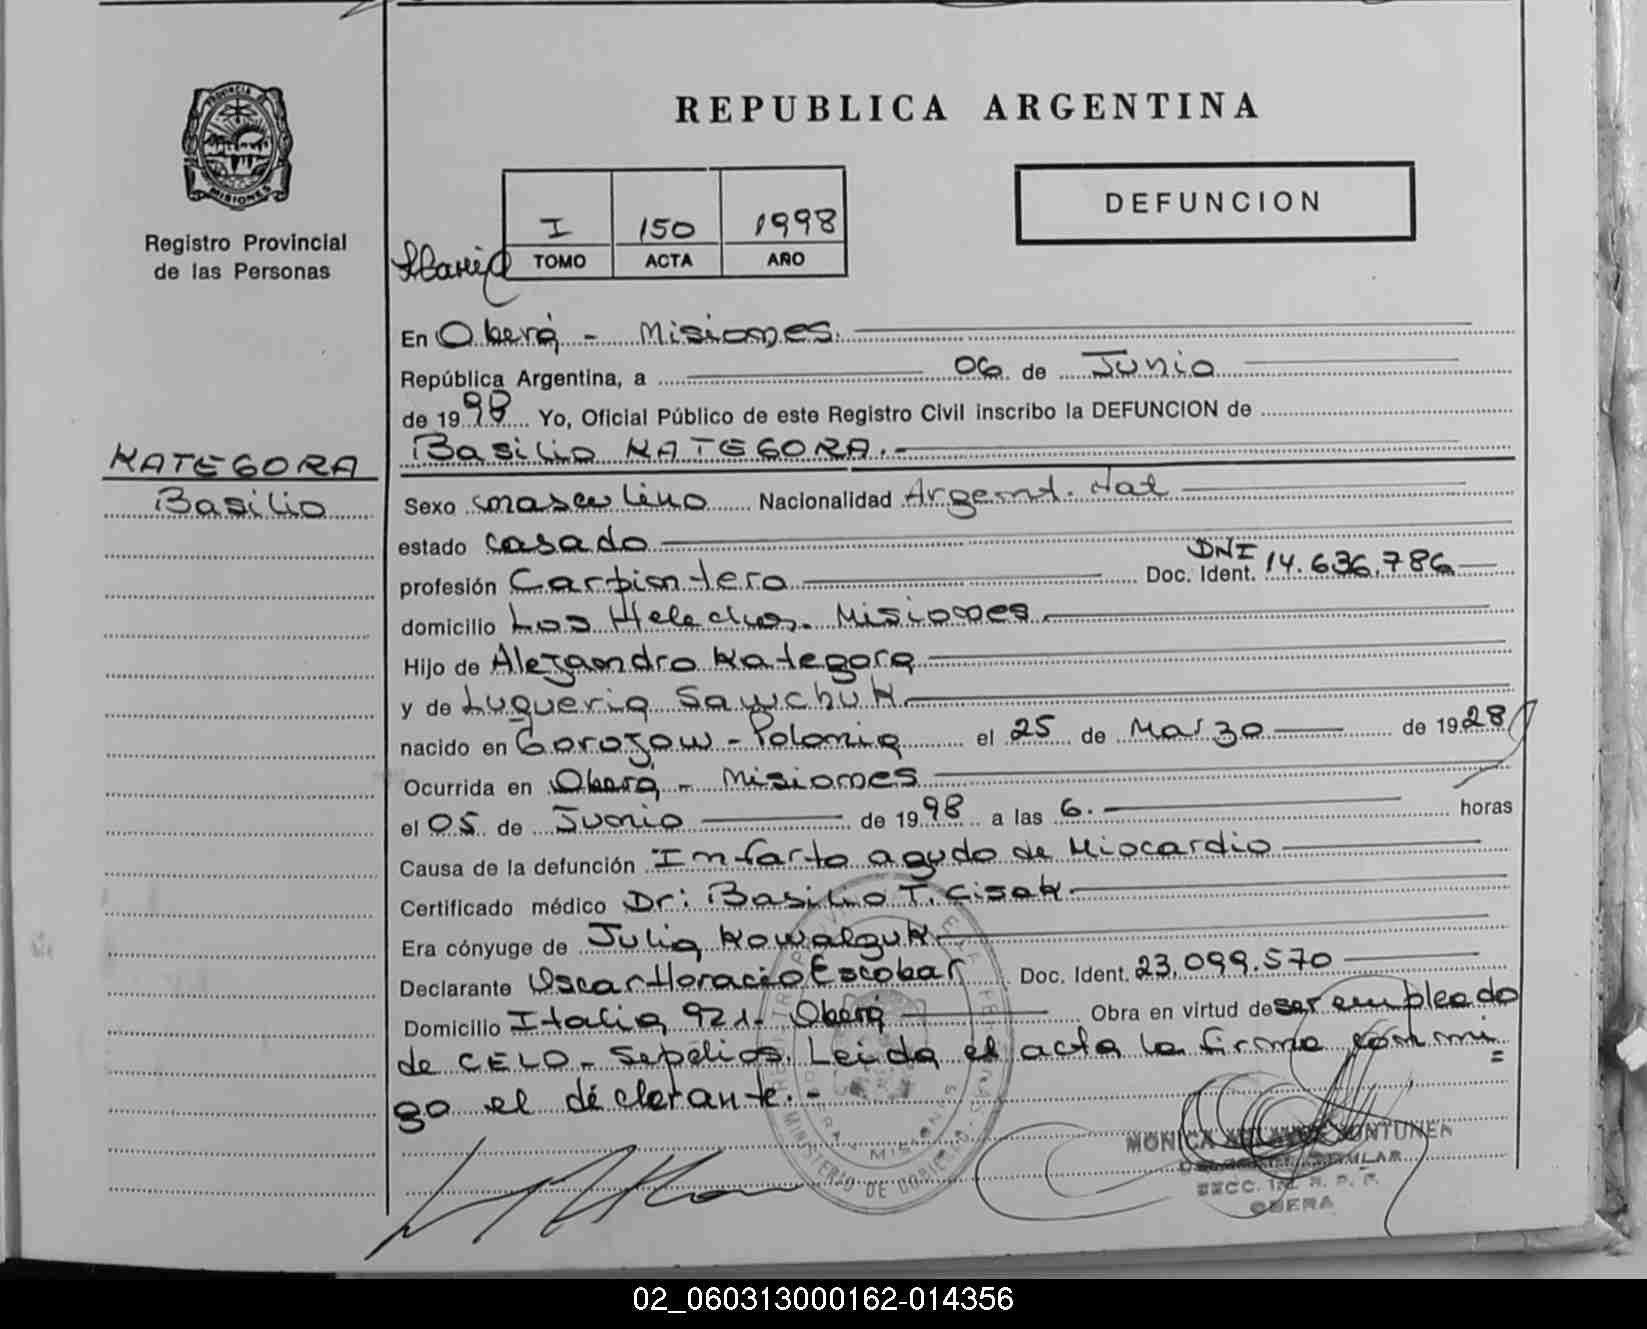 REPUBLICA ARGENTINA
PROVINCIA DE
MISIONES
Registro Provincial
de las Personas
I 150 1998
TOMO ACTA AÑO
DEFUNCION
En Oberá - Misiones.
República Argentina, a 06 de Junio
de 1998 Yo, Oficial Público de este Registro Civil inscribo la DEFUNCION de
KATEGORA
Basilio
Basilio KATEGORA.-
Sexo masculino Nacionalidad Argent. Nat
estado casado
profesión Carpintero DNI Doc. Ident. 14.636.786
domicilio Los Helechos. Misiones
Hijo de Alejandro Kategora
y de Lugueria Sawchuk
nacido en Gorojow - Polonia el 25 de Marzo de 1928
Ocurrida en Oberá - Misiones
el 05 de Junio de 1998 a las 6. horas
Causa de la defunción Infarto agudo de Miocardio
Certificado médico Dr: Basilio T. Cisak.
Era cónyuge de Julia Kowalzuk
Declarante Oscar Horacio Escobar Doc. Ident. 23.099.570
Domicilio Italia 921- Oberá Obra en virtud de ser empleado
de CELO - Sepelios. Leida el acta la firma conmi=
go el declarante.-
MINISTERIO DE GOBIERNO
MISIONES
MONICA
SECC. R. P. P.
OBERA
02_060313000162-014356